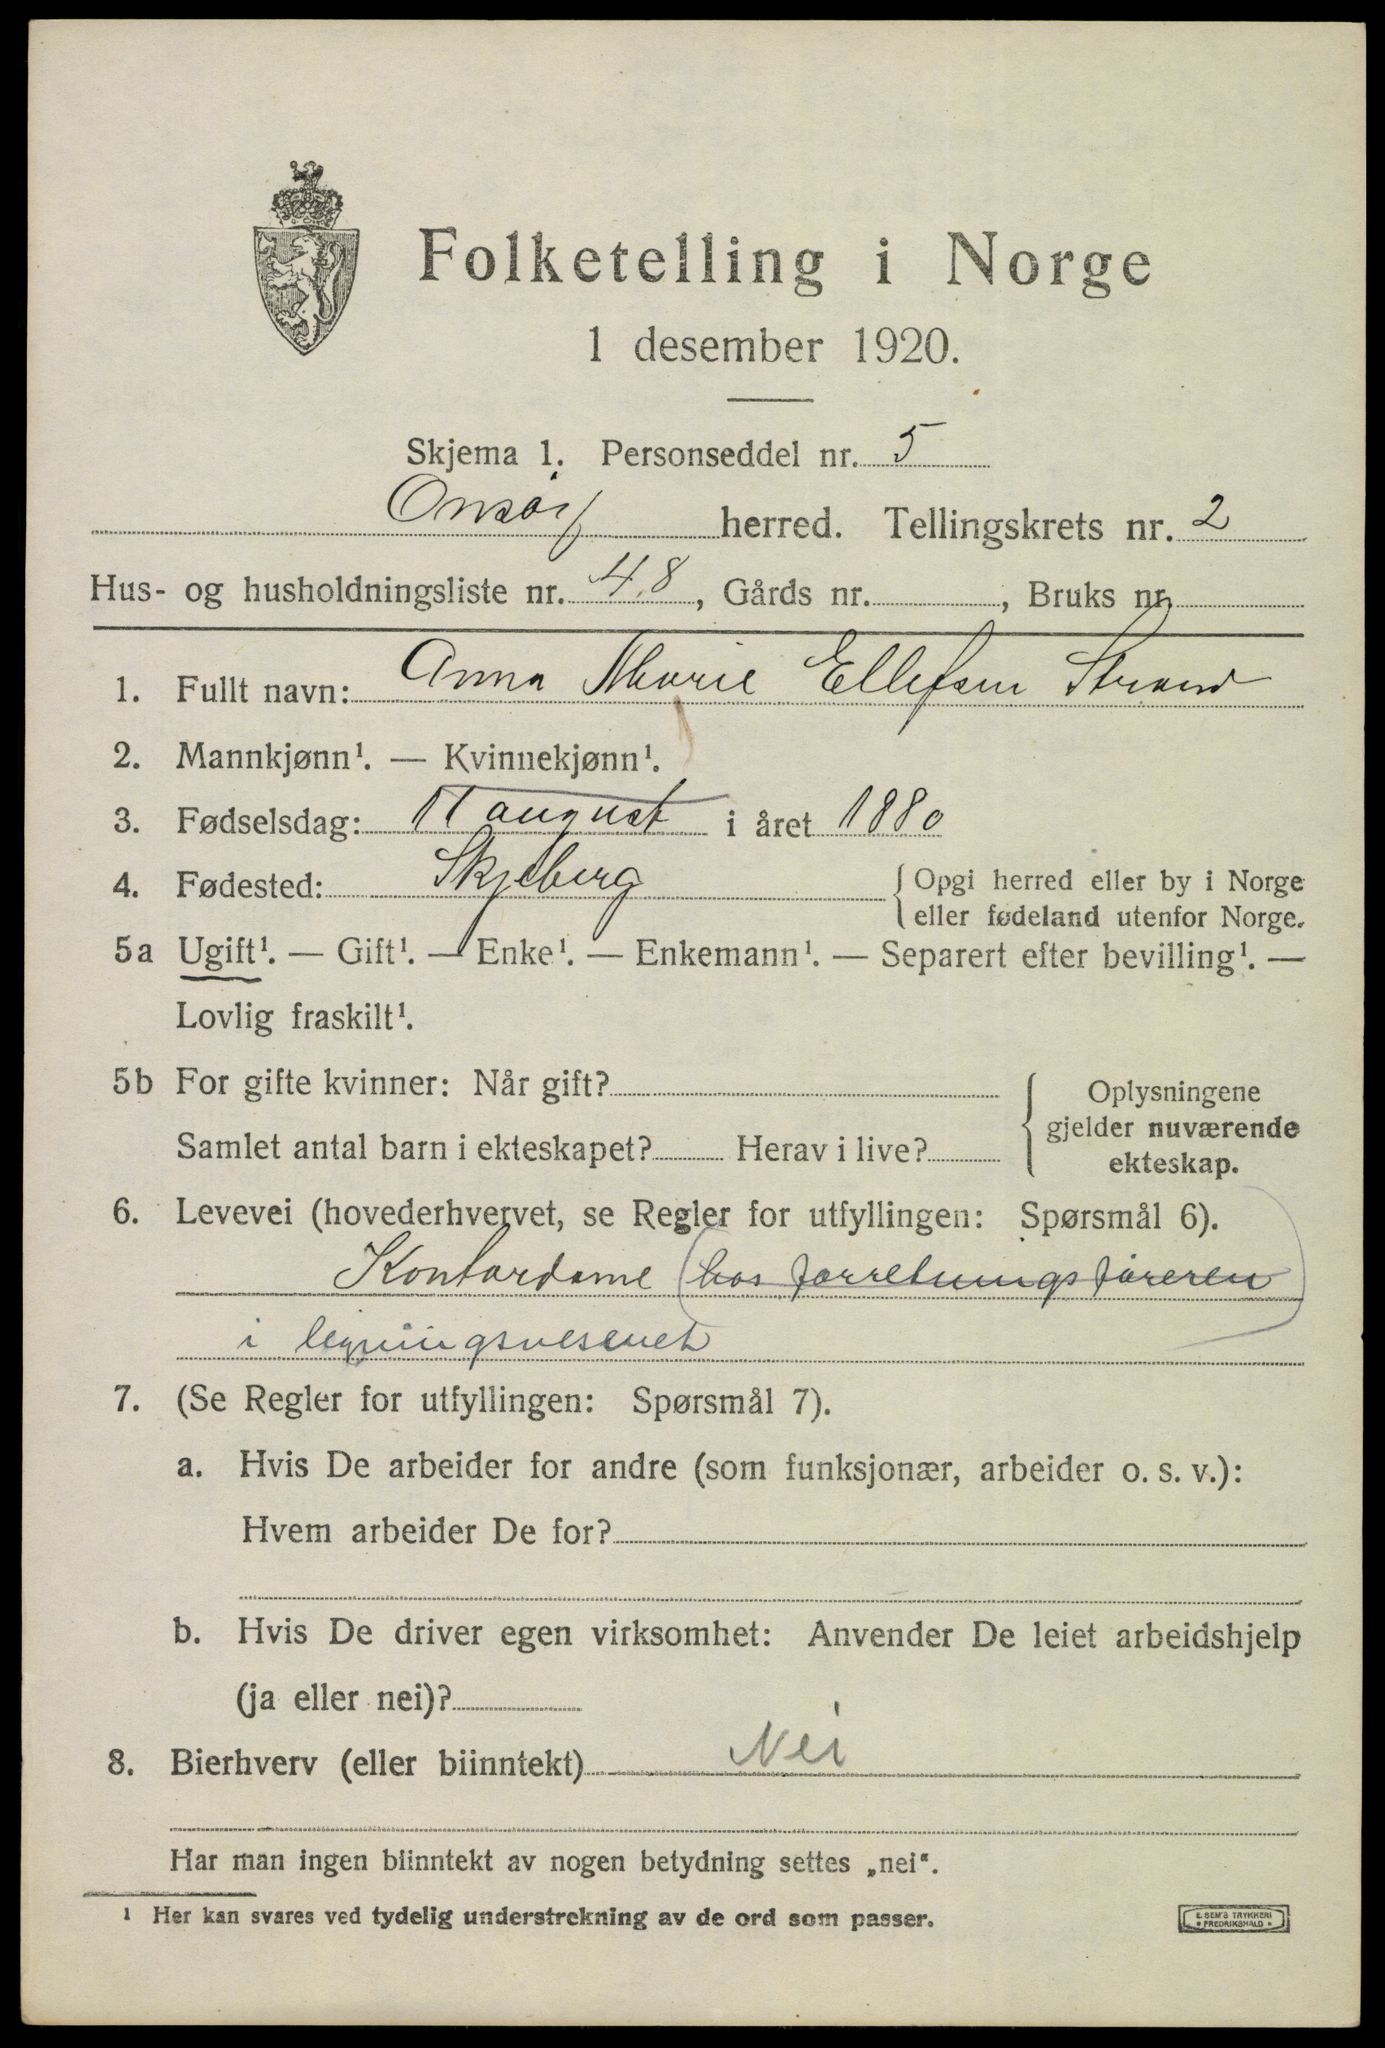 Folketelling i Norge
1 desember 1920.
Skjema 1. Personseddel nr. 5
Onsøy herred. Tellingskrets nr. 2
Hus- og husholdningsliste nr. 48, Gårds nr. , Bruks nr.
1. Fullt navn: Anna Marie Ellefsen Strand
2. Mannkjønn¹. — Kvinnekjønn¹.
3. Fødselsdag: 11 august i året 1880
4. Fødested: Skjeberg { Opgi herred eller by i Norge
eller fødeland utenfor Norge.
5a Ugift¹. — Gift¹. — Enke¹. — Enkemann¹. — Separert efter bevilling¹. —
Lovlig fraskilt¹.
5b For gifte kvinner: Når gift? { Oplysningene
gjelder nuværende
Samlet antal barn i ekteskapet? Herav i live?
ekteskap.
6. Levevei (hovederhvervet, se Regler for utfyllingen: Spørsmål 6).
Kontordame (hos forretningsføreren)
i ligningsvesenet
7. (Se Regler for utfyllingen: Spørsmål 7).
a. Hvis De arbeider for andre (som funksjonær, arbeider o. s. v.):
Hvem arbeider De for?
b. Hvis De driver egen virksomhet: Anvender De leiet arbeidshjelp
(ja eller nei)?
8. Bierhverv (eller biinntekt) Nei
Har man ingen biinntekt av nogen betydning settes „nei“.
¹ Her kan svares ved tydelig understrekning av de ord som passer.
E. SEM'S TRYKKERI
FREDRIKSHALD